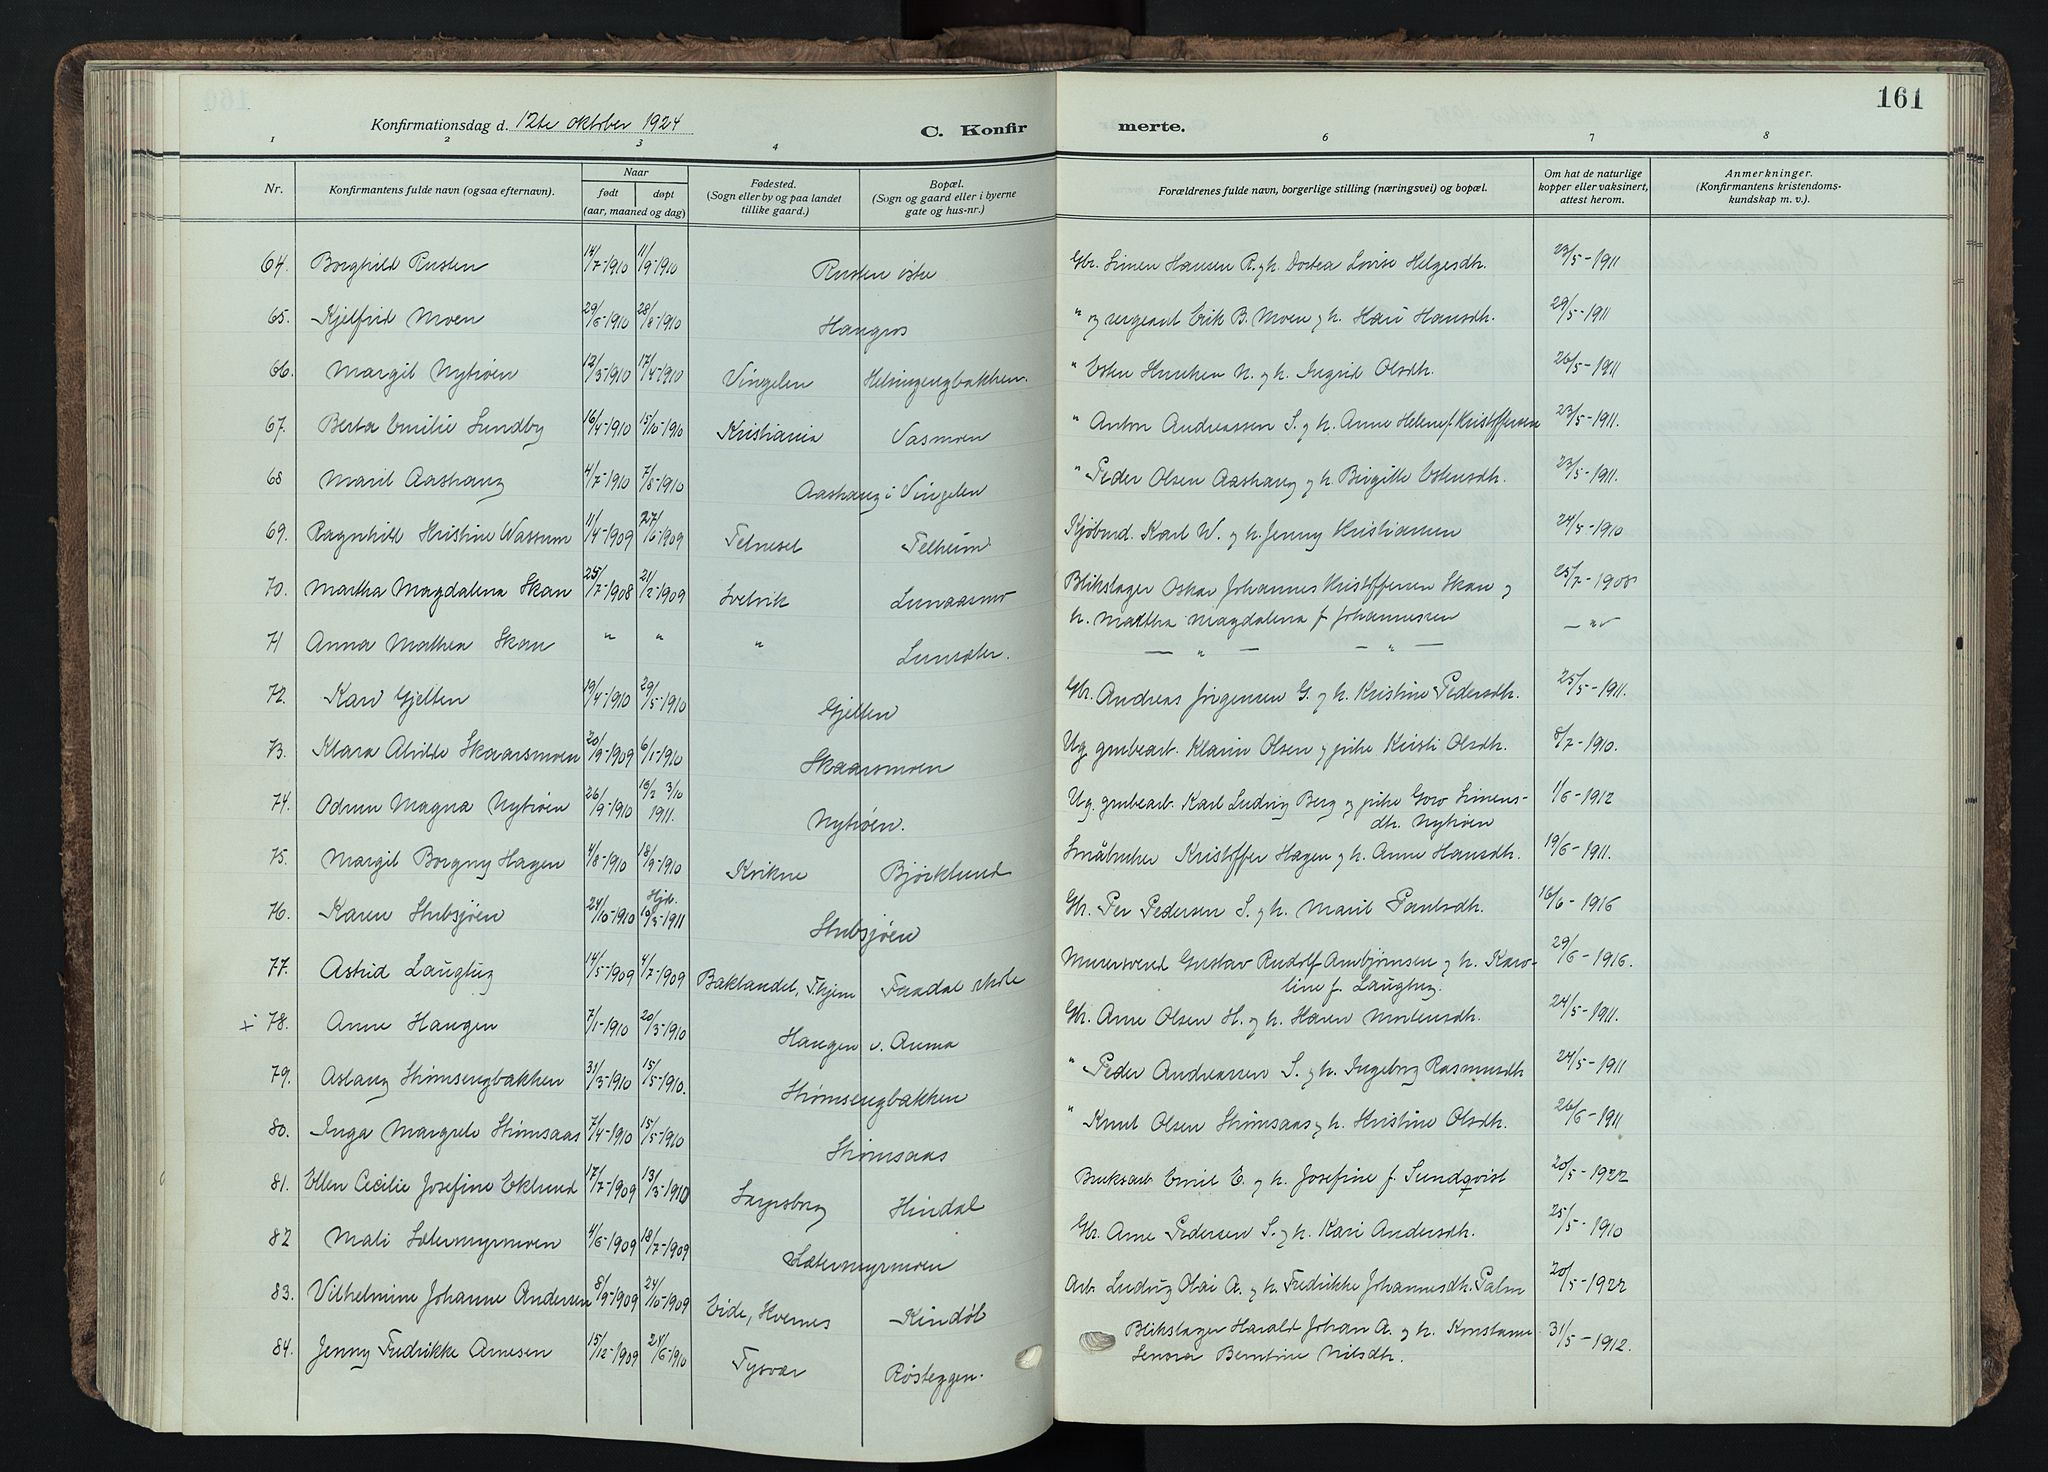 161
Konfirmationsdag d. 12te oktober 1924
C. Konfirmerte.
1 2 3 4 6 7 8
Nr. Konfirmantens fulde navn (ogsaa efternavn). Naar født døpt (aar, maaned og dag) Fødested. (Sogn eller by og paa landet tillike gaard.) Bopæl. (Sogn og gaard eller i byerne gate og hus-nr.) Forældrenes fulde navn, borgerlige stilling (næringsvei) og bopæl. Om hat de naturlige kopper eller vaksinert, attest herom. Anmerkninger. (Konfirmantens kristendomskundskap m. v.).
64. Borghild Rusten 14/7-1910 11/9-1910 Rusten østre Gbr. Simen Hansen R. og h. Dortea Lovise Helgesdh. 23/5-1911
65. Kjelfrid Moen 29/6-1910 28/8-1910 Haugros " og sergeant Erik B. Moen og h. Hansdh. 29/5-1911
66. Margit Nytrøen 12/3-1910 17/4-1910 Vingelen Helsingengbakken. " Esten N. og h. Ingrid Olsdh. 26/5-1911
67. Berta Emilie Sundby 16/4-1910 15/10-1910 Kristiania Vasmoen " Anton Andreassen S. og h. Anne Helene f. Kristoffersen 23/5-1911.
68 Marit Aashaug 4/7-1910 7/8-1910 Aashaug i Vingelen " Peder Olsen Aashaug og h. Birgitte Estensdh. 23/5-1911.
69. Ragnhild Kristine Wassum 11/4-1909 27/6-1909 Telneset Telheim Kjøbmd. Karl W. og h. Jenny Kristiansen 24/5-1910
70. Martha Magdalena Skau 25/7-1908 21/2-1909 Svelvik Lunaasmo Blikslager Oskar Johannes Kristoffersen Skau og 25/7-1908
h. Martha Magdalena f. Johannessen
71 Anna Mathea Skau " " " Lunsæter. — " — — " — — " —
72. Kari Gjelten 19/4-1910 29/5-1910 Gjelten Gbr. Andreas Jørgensen G. og h. Kristine Pedersdh. 25/5-1911.
73. Klara Alvilde Skaarsmoen 20/9-1909 6/1-1910 Skaarsmoen Ug. grubearb. Klarin Olsen og pike Kirsti Olsdh. 8/7-1910.
74. Odrun Magna Nytrøen 26/9-1910 19/2 3/10 1911. Nytrøen. Ug. grubearb. Karl Ludvig Berg og pike Goro Simens- 1/6-1912
dh. Nytrøen
75. Margit Borgny Hagen 4/8-1910 18/9-1910 Kvikne Bjørklund Småbruker Kristoffer Hagen og h. Anne Hansdh. 19/6-1911.
76. Karen Stubsjøen 24/10-1910 Hjd. 19/3-1911 Stubsjøen Gbr. Per Pedersen S. og h. Marit Paulsdh. 16/6-1916
77. Astrid Laugtug 14/5-1909 4/7-1909 Baklandet, T.hjem Faadal skole Murersvend Gustav Rudolf Arnbjørnsen og h. Karo- 29/6-1916.
line f. Laugtug.
+ 78. Anne Haugen 7/1-1910 20/3-1910 Haugen v. Auma Gbr. Arne Olsen H. og h. Karen Mortensdh. 24/5-1911.
79. Aslaug Strømsengbakken 31/3-1910 15/5-1910. Strømsengbakken " Peder Andreassen S. og h. Ingeborg Rasmusdh 24/5-1911
80. Inga Margrete Strømsaas 7/4-1910 15/5-1910 Strømsaas " Knut Olsen Strømsaas og h. Kristine Olsdh. 26/6-1911
81. Ellen Cecilie Josefine Eklund 17/7-1909 13/3-1910 Sarpsborg Hindal Bruksarb. Emil E. og h. Josefine f. Sundqvist 20/5-1922
82 Mali Sætermyrmoen 4/6-1909 18/7-1909 Sætermyrmoen Gbr. Arne Pedersen S. og h. Kari Andersdh. 25/5-1910
83. Vilhelmine Johanne Andersen 8/9-1909 24/10-1909 Eide, Kvernes Kindøl Arb. Ludvig Olai A. og h. Fredrikke Johannesdh. Palm 20/5-1922
84. Jenny Fredrikke Arnesen 15/12-1909 24/6-1910 Tysvær Røsteggen. Blikslager Harald Johan A. og h. Konstanse 31/5-1912.
Lenora Berntine Nilsdh.